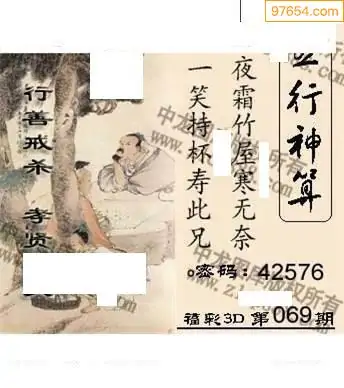 97654.com
行神算
夜霜竹屋寒无奈
一笑持杯寿此兄
行善戒杀 孝贤
密码：42576
福彩3D 第069期
中龙图库版权所有